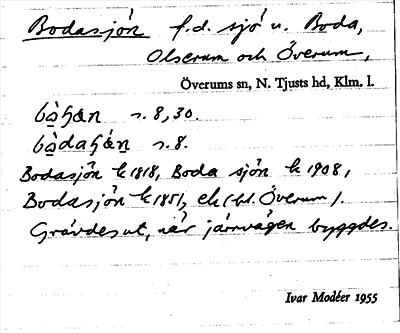 Bodasjön f.d. sjö u. Boda,
Olserum och Överum,
Överums sn, N. Tjusts hd, Klm. l.
s. 8, 30.
s. 8.
Bodasjön k 1818, Boda sjön k 1908,
Bodasjön k 1851, ek (bl. Överum).
Grävdes ut, när järnvägen byggdes.
Ivar Modéer 1955